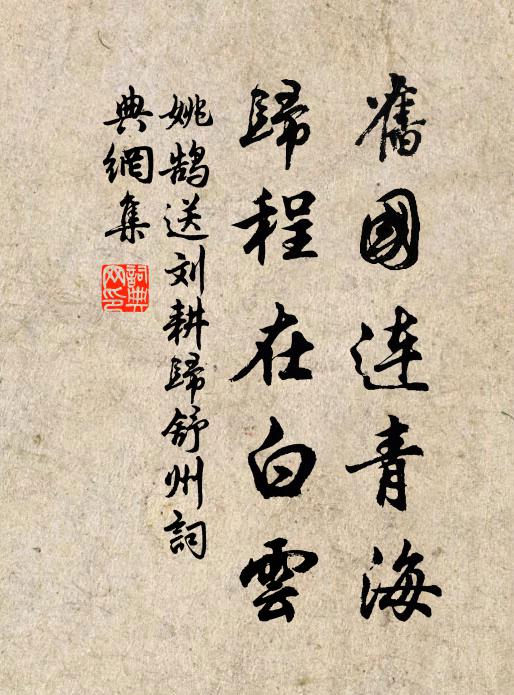 舊國連青海
歸程在白雲
姚鵠送刘耕歸舒州詞
典網集
詞典網印